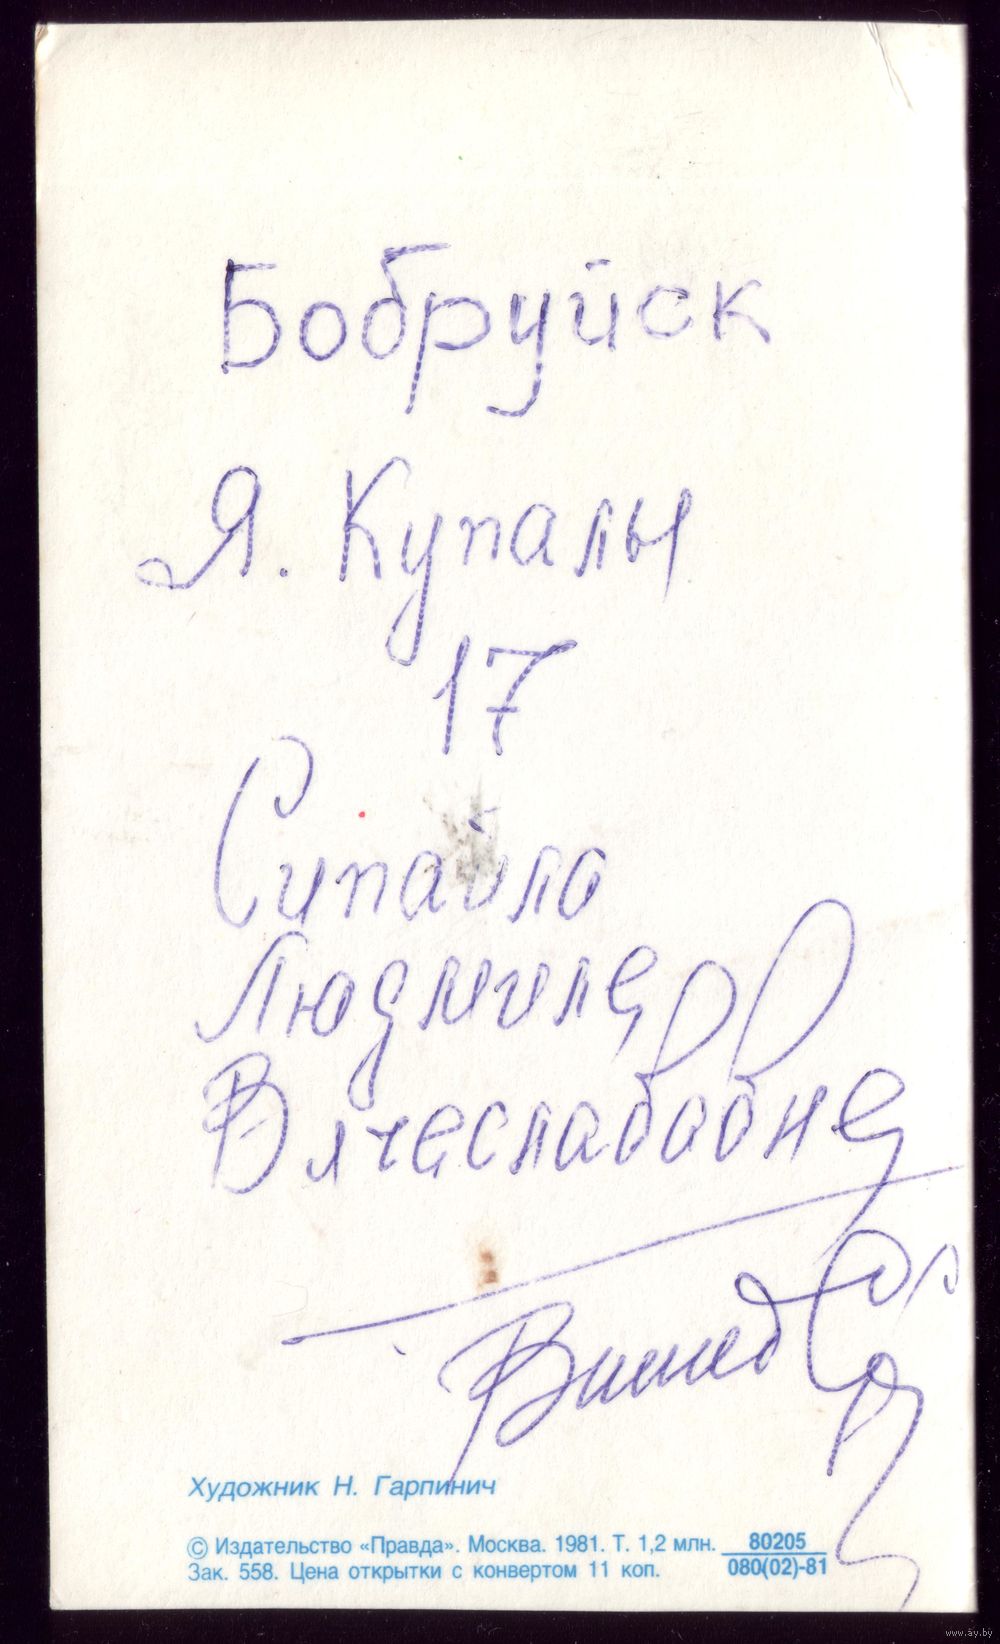 Бобруйск
Я. Купалы
17
Сипайло
Людмиле
Вячеславовне
Художник Н. Гарпинич
© Издательство «Правда». Москва. 1981. Т. 1,2 млн. 80205
Зак. 558. Цена открытки с конвертом 11 коп. 080(02)-81
www.ay.by